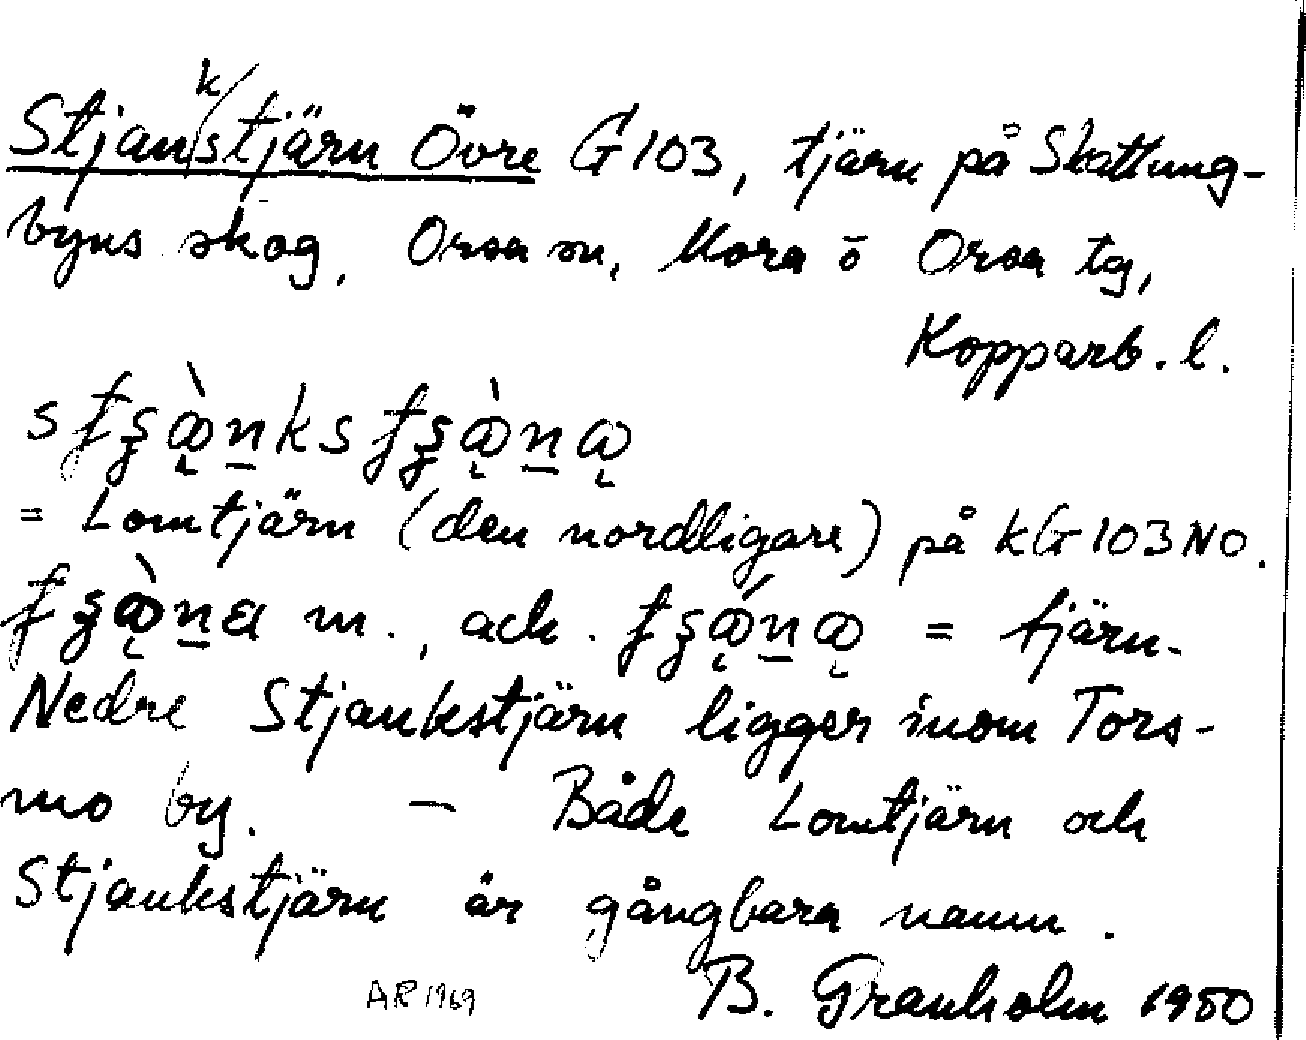 Stjankstjärn Övre G103, tjärn på Skattung-
byns skog, Orsa sn, Mora o Orsa tg,
Kopparb. l.
= Lomtjärn (den nordligare) på kG103NO.
m., ack. = tjärn.
Nedre Stjankstjärn ligger inom Tors-
mo by. — Både Lomtjärn och
Stjankstjärn är gångbara namn.
B. Granholm 1950
AR 1969